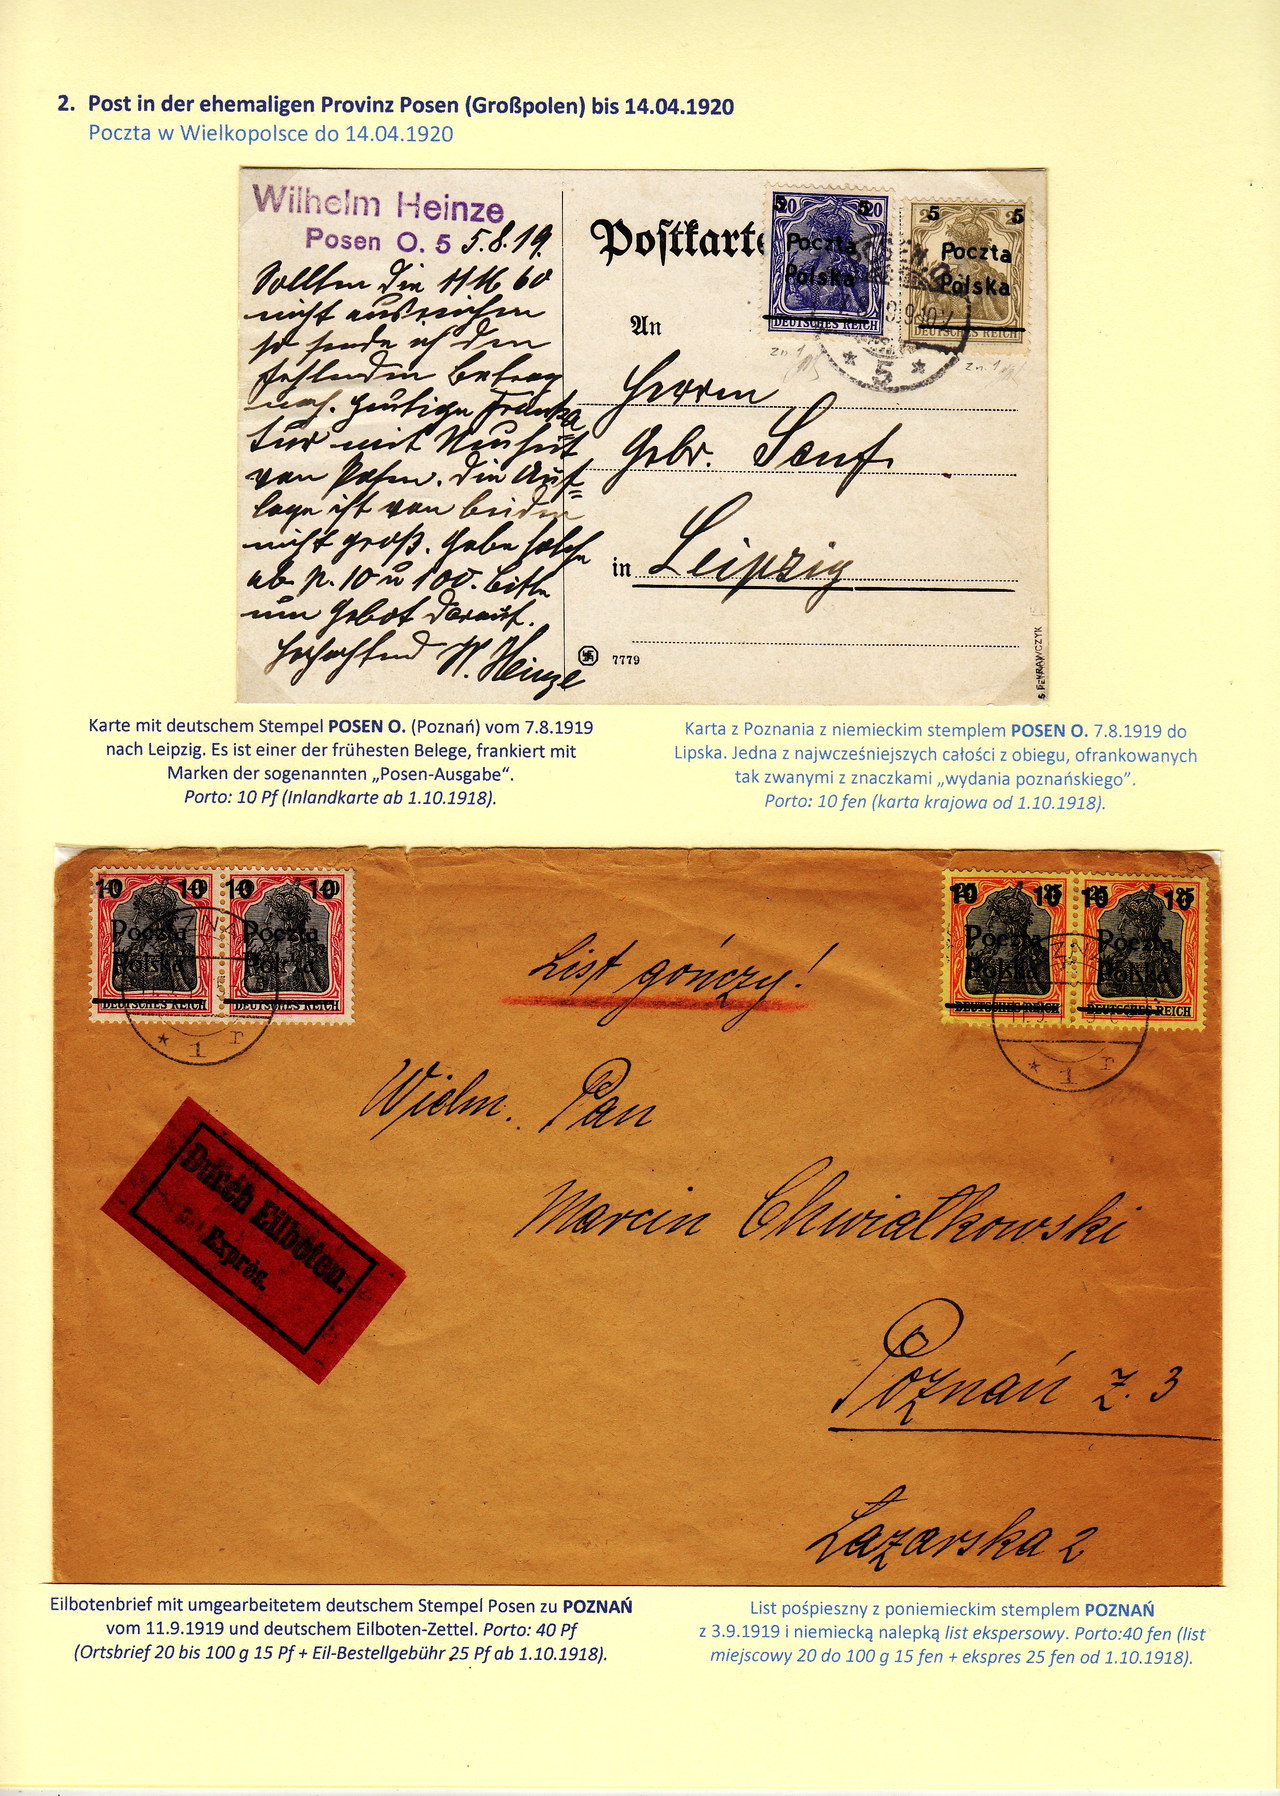 2. Post in der ehemaligen Provinz Posen (Großpolen) bis 14.04.1920
Poczta w Wielkopolsce do 14.04.1920
Wilhelm Heinze
Posen O. 5 5.8.19.
Sollten die M 60
nicht ausreichen
so sende ich den
fehlenden Betrag
nach. Heutige Franka
tur mit Neuheit
von Posen. Die Auf=
lage ist von beiden
nicht groß. Habe solche
ab p. 10 u 100. Bitte
um Gebot darauf.
Hochachtend W. Heinze
Postkarte
5 20 5 20
Poczta
Polska
DEUTSCHES REICH
5 5
Poczta
Polska
DEUTSCHES REICH
* 5 *
An
Herrn
Gebr. Senf
in Leipzig
7779
Karte mit deutschem Stempel POSEN O. (Poznań) vom 7.8.1919
nach Leipzig. Es ist einer der frühesten Belege, frankiert mit
Marken der sogenannten „Posen-Ausgabe“.
Porto: 10 Pf (Inlandkarte ab 1.10.1918).
Karta z Poznania z niemieckim stemplem POSEN O. 7.8.1919 do
Lipska. Jedna z najwcześniejszych całości z obiegu, ofrankowanych
tak zwanymi z znaczkami „wydania poznańskiego”.
Porto: 10 fen (karta krajowa od 1.10.1918).
10 10 10 10
Poczta Poczta
Polska Polska
DEUTSCHES REICH DEUTSCHES REICH
* 1 r
10 10 10 10
Poczta Poczta
Polska Polska
DEUTSCHES REICH DEUTSCHES REICH
* 1 r
List gończy!
Wielm. Pan
Marcin Chwiałkowski
Poznań z. 3
Łazarska 2
Durch Eilboten.
Exprès.
Eilbotenbrief mit umgearbeitetem deutschem Stempel Posen zu POZNAŃ
vom 11.9.1919 und deutschem Eilboten-Zettel. Porto: 40 Pf
(Ortsbrief 20 bis 100 g 15 Pf + Eil-Bestellgebühr 25 Pf ab 1.10.1918).
List pośpieszny z poniemieckim stemplem POZNAŃ
z 3.9.1919 i niemiecką nalepką list ekspersowy. Porto:40 fen (list
miejscowy 20 do 100 g 15 fen + ekspres 25 fen od 1.10.1918).